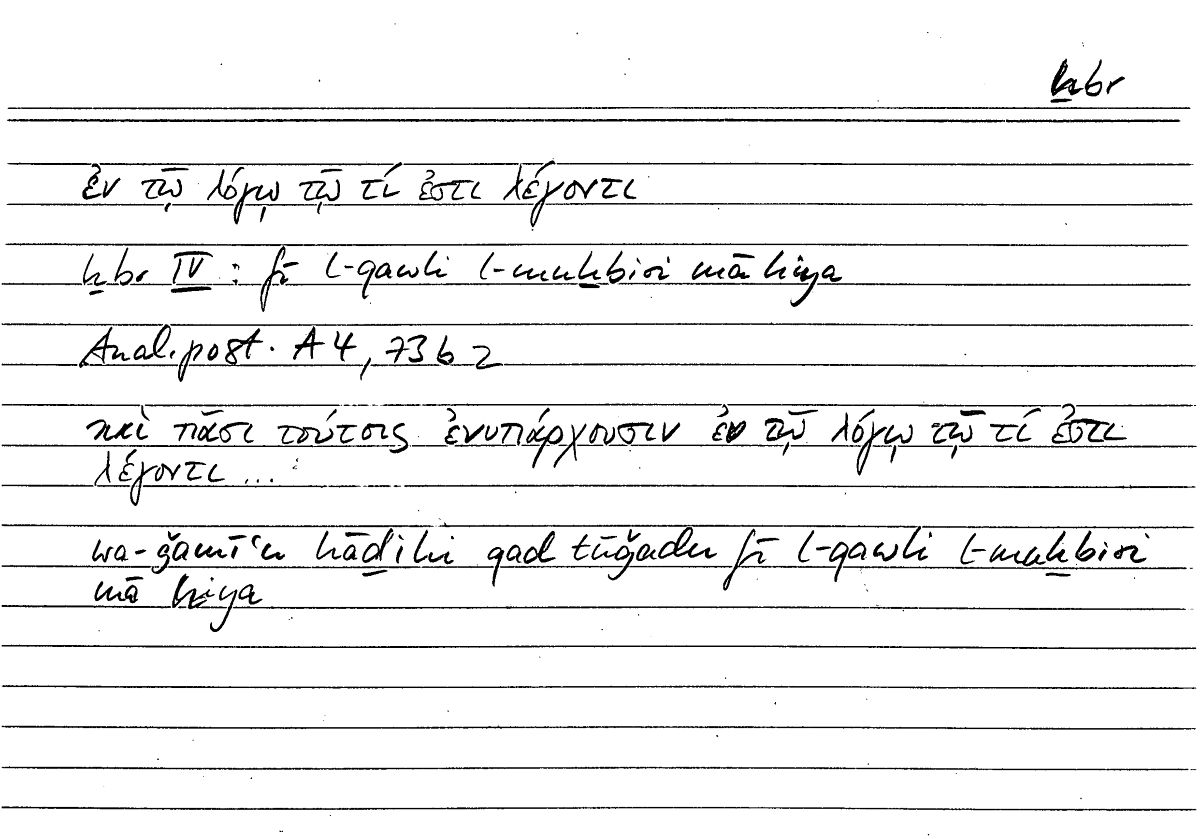 ḫbr
ἐν τῷ λόγῳ τῷ τί ἐστι λέγοντι
ḫbr IV : fī l-qawli l-muḫbiri mā hiya
Anal. post. A 4, 73 b 2
καὶ πᾶσι τούτοις ἐνυπάρχουσιν ἐν τῷ λόγῳ τῷ τί ἐστι
λέγοντι ...
wa-ǧamīʿu hāḏihi qad tūǧadu fī l-qawli l-muḫbiri
mā hiya